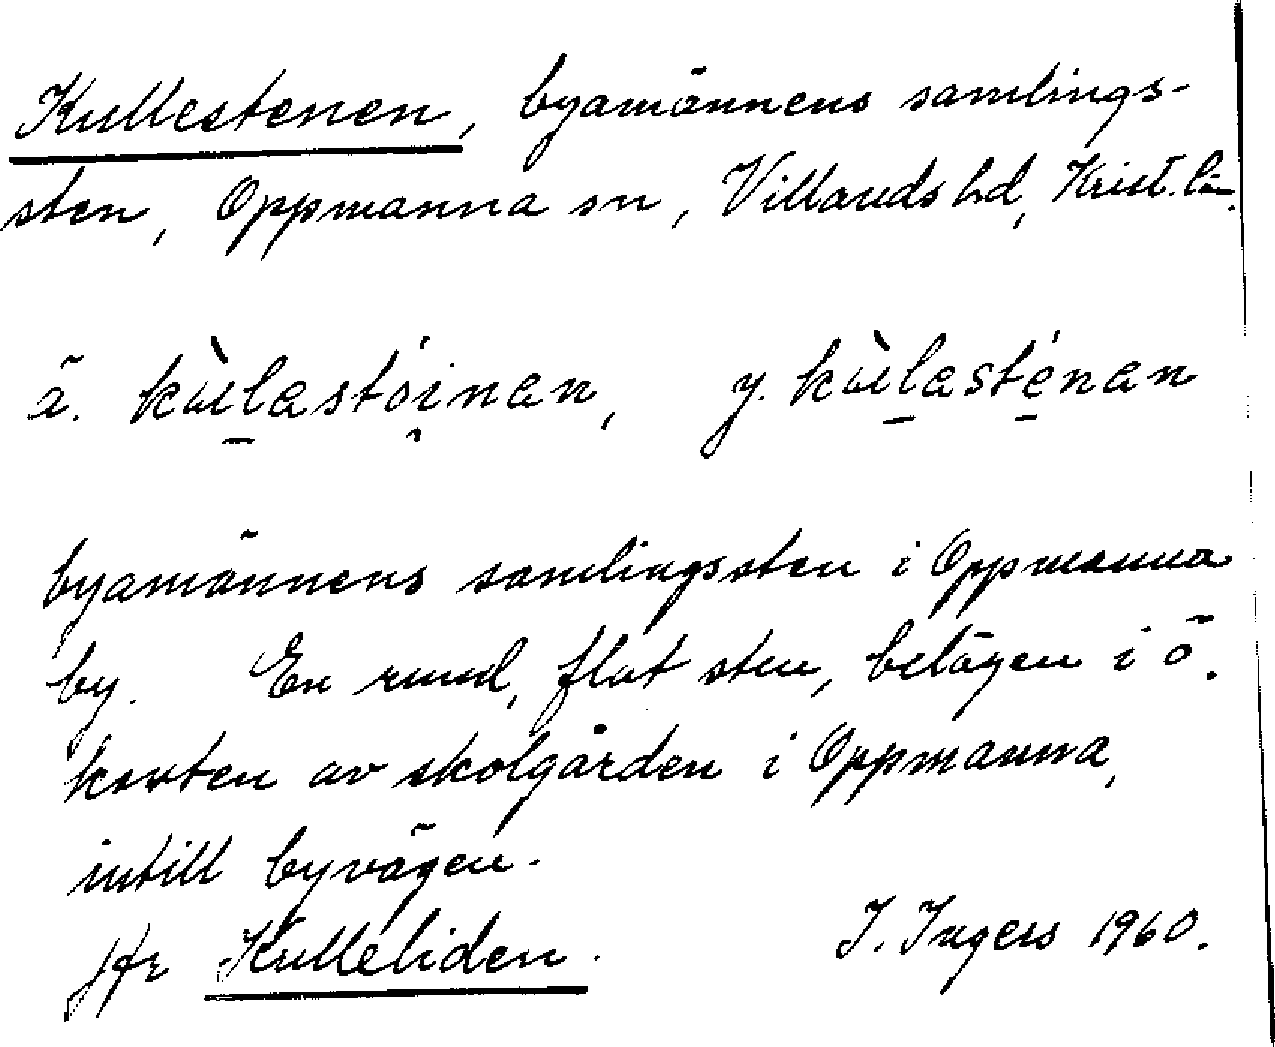 Kullestenen, byamännens samlings-
sten, Oppmanna sn, Villands hd, Krist. län.
ä. kùlastóinan, y. kùlasténan
byamännens samlingssten i Oppmanna
by. En rund, flat sten, belägen i ö.
kanten av skolgården i Oppmanna,
intill byvägen.
jfr Kulleliden.
I. Ingers 1960.